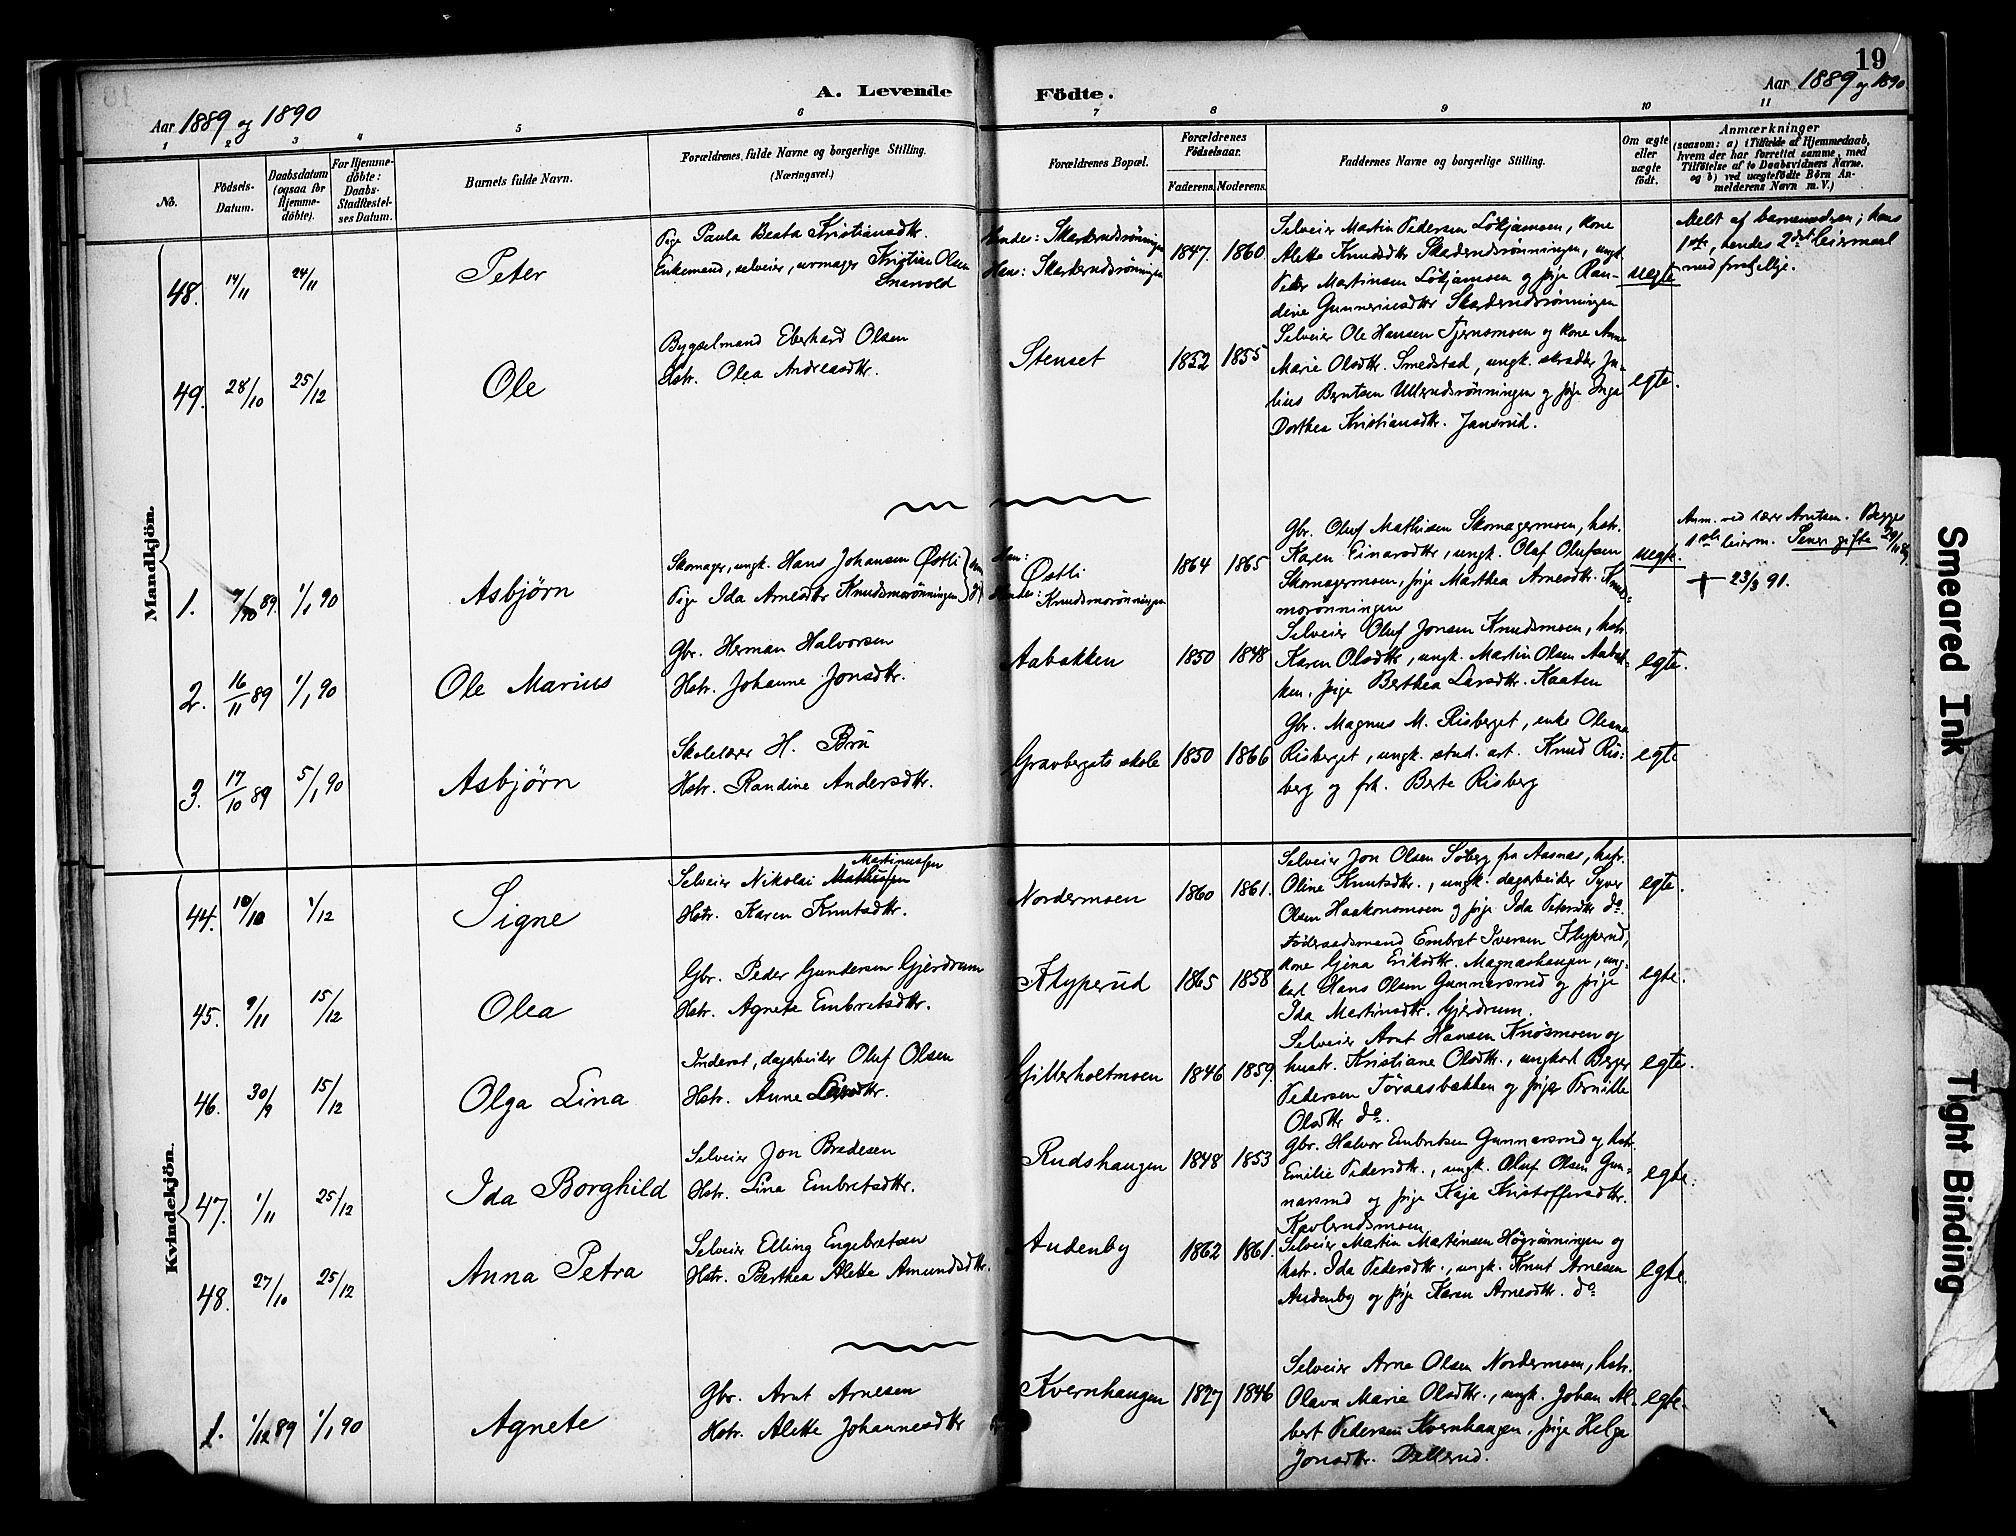 19
Aar 1889 og 1890
A. Levende Födte.
Aar 1889 og 1890
1 2 3 4 5 6 7 8 9 10 11
No.
Födsels-Datum.
Daabsdatum (ogsaa for Hjemme-döbte).
For Hjemme-döbte: Daabs-Stadfæstel-ses Datum.
Barnets fulde Navn.
Forældrenes fulde Navne og borgerlige Stilling.
(Næringsvei.)
Forældrenes Bopæl.
Forældrenes Födselsaar.
Faderens. Moderens.
Faddernes Navne og borgerlige Stilling.
Om ægte eller uægte födt.
Anmærkninger
(saasom: a) i Tilfælde af Hjemmedaab,
hvem der har forrettet samme, med
Tilföielse af to Daabsvidners Navne,
og b) ved uægtefödte Börn An-
melderens Navn m. V.)
Mandkjön.
48. 14/11 24/11 Peter
Pige Paula Beata Kristiansdtr.
Enkemand, selveier, urmager Kristian Olsen
Snarvold
Hendes: Skarderudsrönningen
Hans: Skarderudsrönningen
1847. 1860.
Selveier Martin Pedersen Lökjamoen, kone
Alette Knudsdtr Skarderudsrönningen, ungk.
Peder Martinsen Lökjamoen og pige Ran-
dine Gunneriusdtr Skarderudsrönningen
uegte
Meldt af barnemoderen; hans
1ste, hendes 2det leiermaal
49. 28/10 25/12 Ole
Bygselmand Eberhard Olsen
Hstr. Olea Andreasdtr.
Stenset 1852 1855
Selveier Ole Hansen Tjernsmoen og kone Anne
Marie Olsdtr. Smedstad, ungk. skrædder Ju-
lius Berntsen Ullerudsrönningen og pige Inga
Dorthea Kristiansdtr. Jansrud.
egte.
1. 89 1/1 90 Asbjörn
Skomager, ungk. Hans Johansen Östli
Pige Ida Arnesdtr Knudsmorönningen
Östli
Hendes: Knudsmorönningen
1864 1865
Gbr. Oluf Mathisen Skomagermoen, hstr.
Karen Einarsdtr, ungk. Olaf Olufsen
Skomagermoen, pige Marthea Arnesdtr. Knud-
morönningen
uegte.
Anm. ved lærer Arntsen. Begges
1ste leierm. Senere gifte
+ 23/3 91.
2. 16/11 89 1/1 90 Ole Marius
Gbr. Herman Halvorsen
Hstr. Johanne Jonsdtr.
Aabakken 1850 1848
Selveier Oluf Jonsen Knudsmoen, hstr.
Karen Olsdtr, ungk. Martin Olsen Aabak-
ken, pige Berthea Larsdtr. Kaaten
egte.
3. 17/10 89 5/1 90 Asbjörn
Skolelærer H. Brú
Hstr. Randine Andersdtr.
Gravbergets skole 1850 1866
Gbr. Magnus M. Risberget, enke Oleana
Risberget, ungk. stud. art. Knud Ris-
berg og frk. Berte Risberg
egte
Kvindekjön.
44. 10/10 1/12 Signe
Martinussen
Selveier Nikolai Mathisen
Hstr. Karen Knutsdtr.
Nordermoen 1860 1861.
Selveier Jon Olsen Söberg fra Aasnæs, hstr.
Oline Knutsdtr., ungk. dagarbeider Syver
Olsen Haakonsmoen og pige Ida Petersdtr do.
egte.
45. 9/11 15/12 Olea
Gbr. Peder Gundersen Gjerdrum
Hstr. Agnete Embretsdtr.
Klyperud 1865 1858
Föderaadsmand Embret Iversen Klyperud,
kone Gjena Eriksdtr. Magnashaugen, ung-
karl Hans Olsen Gunnarsrud og pige
Ida Martinsdtr. Gjerdrum.
egte.
46. 30/9 15/12 Olga Lina
Inderst, dagarbeider Oluf Olsen
Hstr. Anne Larsdtr.
Gitterholtmoen 1846 1859.
Selveier Arnt Hansen Knösmoen og
hustr. Kristiane Olsdtr., ungkarl Berger
Pedersen Töraasbakken og pige Pernille
Olsdtr do.
egte.
47. 1/11 25/12 Ida Borghild
Selveier Jon Bredesen
Hstr. Lina Embretsdtr.
Rudshaugen 1848 1853
Gbr. Halvor Embretsen Gunnarsrud og hstr.
Emilie Pedersdtr., ungk. Oluf Olsen Gun-
narsrud og pige Kaja Kristoffersdtr.
Kavlerudsmoen
egte.
48. 27/10 25/12 Anna Petra
Selveier Elling Engebretsen
Hstr. Berthea Alette Amundsdtr.
Audenby 1862 1861.
Selveier Martin Martinsen Högrönningen og
hstr. Ida Pedersdtr., ungk. Knut Arnesen
Audenby og pige Karen Arnesdtr. do
egte.
1. 1/12 89 1/1 90 Agnete
Gbr. Arnt Arnesen
Hstr. Alette Johannesdtr
Kvernhaugen 1827 1846
Selveier Arne Olsen Nordermoen, hstr.
Olava Marie Olsdtr., ungk. Johan Al-
bert Pedersen Kvernhaugen, pige Helga
Jonsdtr. Dellerud.
egte.
Smeared Ink
Tight Binding